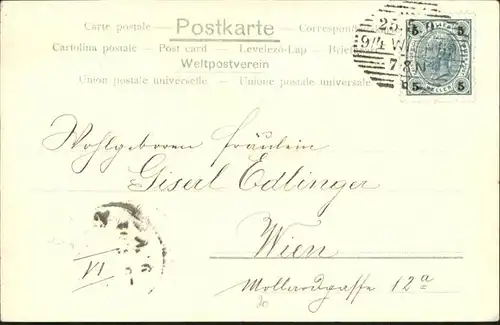 Carte postale — Postkarte — Correspon
Cartolina postale — Post card — Levelező-Lap — Brie
Weltpostverein
Union postale universelle. — Unione postale universale
25.
5 5
9/4 W
7-8N
HELLER
5 5
Wohlgeboren Fräulein
Gisel Edlinger
Wien
VI
Mollardgasse 12a